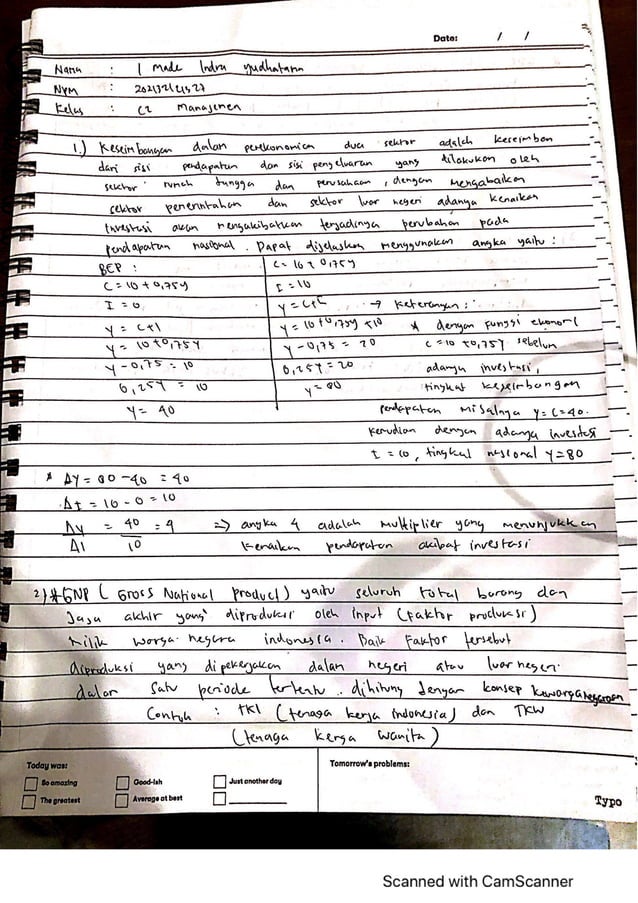 Date: / /
Nama : I Made Indra yudhatama
NPM :
Kelas : C2 Manajemen
1.) Keseimbangan dalam perekonomian dua sektor adalah keseimban
dari sisi pendapatan dan sisi pengeluaran yang dilakukan oleh
sektor rumah tangga dan perusahaan, dengan mengabaikan
sektor pemerintahan dan sektor luar negeri adanya kenaikan
Investasi akan mengakibatkan terjadinya perubahan pada
pendapatan nasional. Dapat dijelaskan menggunakan angka yaitu :
BEP :
C = 10 + 0,75Y
I = 0
Y = C+I
Y = 10 + 0,75Y
Y - 0,75 = 10
0,25Y = 10
Y = 40
C = 10 + 0,75Y
I = 10
Y = C+I
Y = 10 + 0,75Y + 10
Y - 0,75 = 20
0,25Y = 20
Y = 80
→ Keterangan :
* dengan fungsi ekonomi
C = 10 + 0,75Y sebelum
adanya investasi,
tingkat keseimbangan
pendapatan misalnya Y = C = 40.
Kemudian dengan adanya investasi
I = 10, tingkat nasional Y = 80
* ΔY = 80 - 40 = 40
ΔI = 10 - 0 = 10
ΔY = 40 = 4 => angka 4 adalah multiplier yang menunjukkan
ΔI 10 kenaikan pendapatan akibat investasi
2) * GNP ( Gross National product) yaitu seluruh total barang dan
Jasa akhir yang diproduksi oleh input (faktor produksi)
milik warga negara indonesia. Baik faktor tersebut
diproduksi yang dipekerjakan dalam negeri atau luar negeri
dalam satu periode tertentu. dihitung dengan konsep kewarganegaraan
Contoh : TKI (tenaga kerja indonesia) dan TKW
(tenaga kerja wanita)
Today was:
So amazing
Good-ish
Just another day
The greatest
Average at best
Tomorrow's problems:
Typo
Scanned with CamScanner